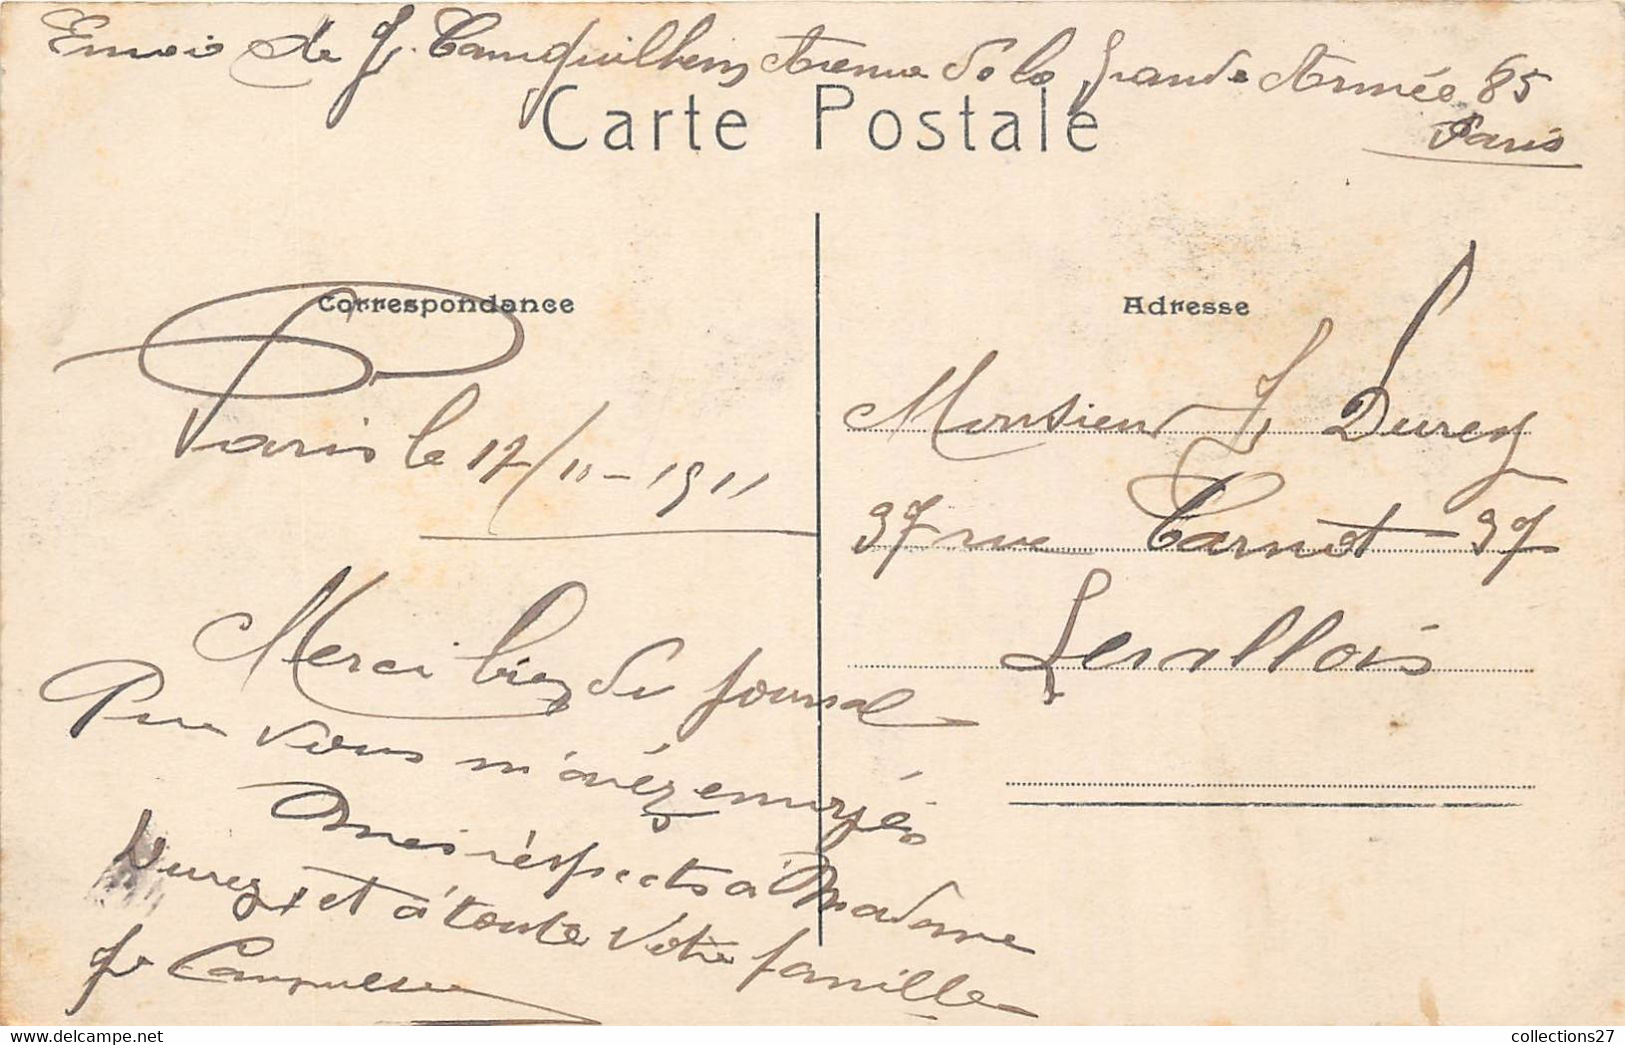 Envoi de J. Campguilhem Avenue de la Grande Armée 85
Paris
Carte Postale
Correspondance
Paris le 17/11-1911
Merci bien du journal
Que vous m'avéz envoyés
mes réspects à Madame
Durey, et à toute Votre famille
Adresse
Monsieur J. Durey
37 rue Carnot 37
Levallois
collections27